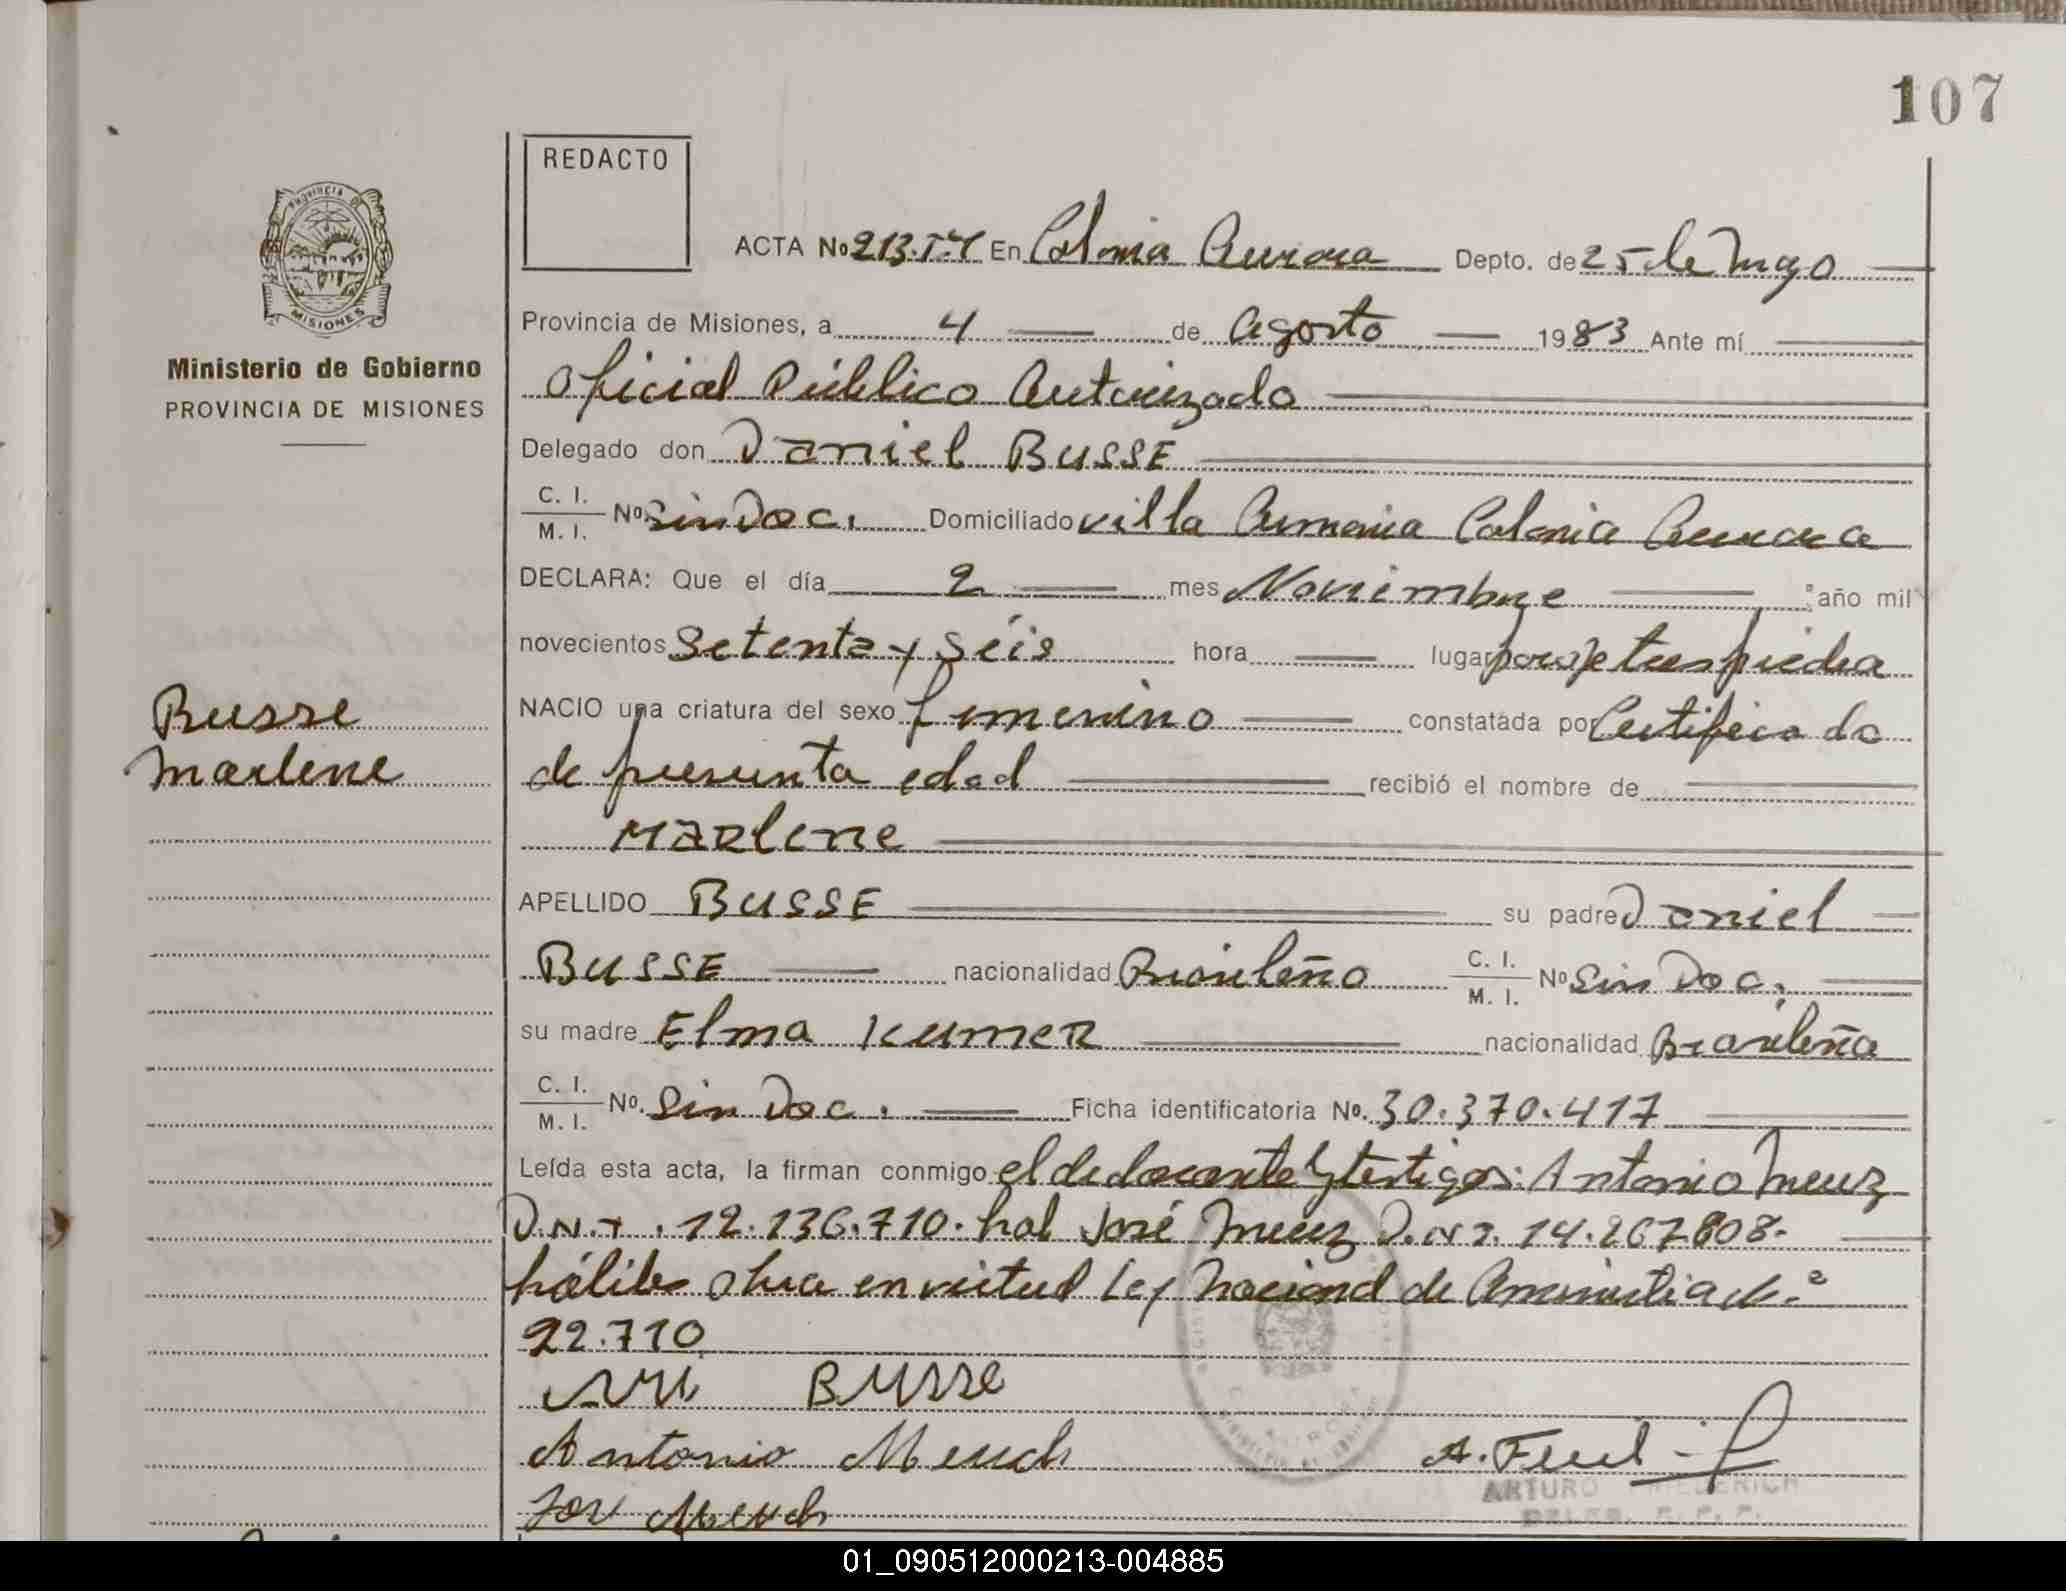 107
REDACTO
PROVINCIA DE
MISIONES
ACTA No 213.Tº1 En Colonia Aurora Depto. de 25 de Mayo
Provincia de Misiones, a 4 de Agosto 1983 Ante mí
Oficial Público Autorizado
Ministerio de Gobierno
PROVINCIA DE MISIONES
Delegado don Daniel BUSSE
C. I.
M. I. No. Sin Doc. Domiciliado villa Armonia Colonia Aurora
DECLARA: Que el día 2 mes Noviembre año mil
novecientos Setenta y Séis hora lugar paraje tres piedra
Busse
Marlene
NACIO una criatura del sexo femenino constatada por Certificado
de presunta edad recibió el nombre de
MARlene
APELLIDO BUSSE su padre Daniel
BUSSE nacionalidad Brasileño C. I.
M. I. No Sin Doc.
su madre Elma Kumer nacionalidad Brasileña
C. I.
M. I. No. Sin Doc. Ficha identificatoria No. 30.370.417
Leída esta acta, la firman conmigo el declarante y testigos: Antonio Meuz
D.N.I. 12.136.710. hal José Meuz D.N.I. 14.267.808.
hábiles obra en virtud Ley Nacional de Amnistia
22.710
Busse
Antonio Meuch
José Meuch
A. Fried
ARTURO FRIEDERICH
DELEG. R. P. P.
01_090512000213-004885